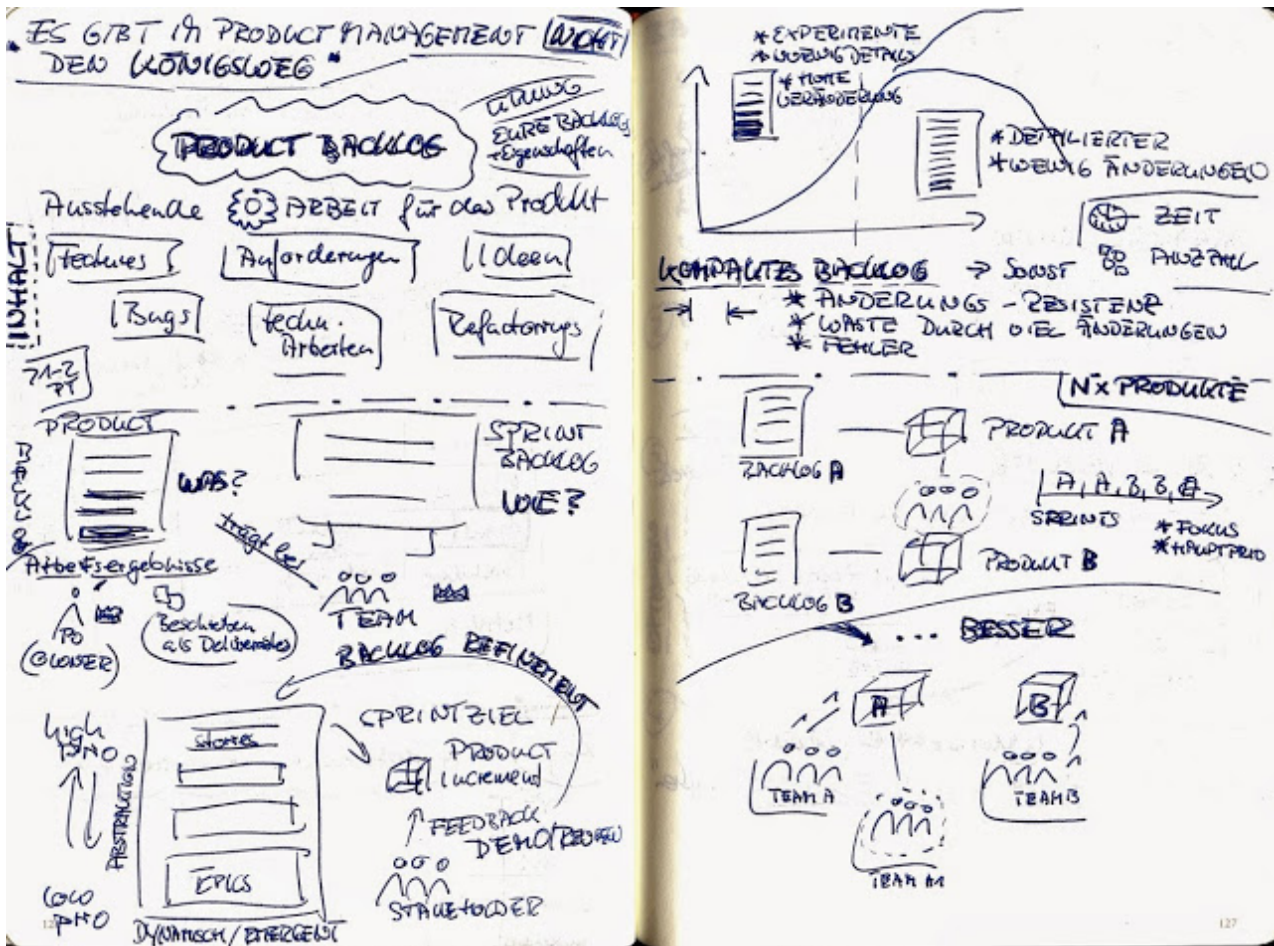 "ES GIBT IM PRODUCTMANAGEMENT NICHT
DEN KÖNIGSWEG"
PRODUCT BACKLOG
EURE BACKLOG
Eigenschaften
Ausstehende ARBEIT für das Produkt
INHALT
Features
Anforderungen
Ideen
Bugs
techn.
Arbeiten
Refactorings
1-2
PT
PRODUCT
BACKLOG
WAS?
SPRINT
BACKLOG
WIE?
trägt bei
Arbeitsergebnisse
PO
(OWNER)
Beschrieben
als Deliverables
TEAM
BACKLOG REFINEMENT
high
PRIO
ABSTRAKTION
low
PRIO
Stories
EPICS
DYNAMISCH / EMERGENT
SPRINTZIEL
PRODUCT
Increment
FEEDBACK
DEMO/REVIEW
STAKEHOLDER
* EXPERIMENTE
* WENIG DETAILS
* HOHE
VERÄNDERUNG
* DETAILIERTER
* WENIG ÄNDERUNGEN
KOMPAKTES BACKLOG → SONST
ZEIT
ANZAHL
* ÄNDERUNGS-RESISTENZ
* WASTE DURCH VIEL ÄNDERUNGEN
* FEHLER
N x PRODUKTE
BACKLOG A
PRODUKT A
A, A, B, B, A
SPRINTS
* FOKUS
* HAUPTPRIO
BACKLOG B
PRODUKT B
... BESSER
A
B
TEAM A
TEAM B
127